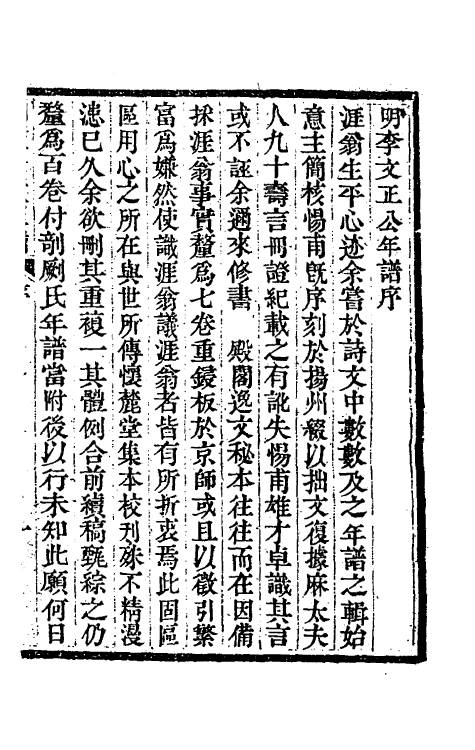 明李文正公年譜序
涯翁生平心迹余嘗於詩文中數數及之年譜之輯始
意主簡核惕甫旣序刻於揚州綴以拙文復據麻太夫
人九十壽言冊證紀載之有訛失惕甫雄才卓識其言
或不誣余邇來修書　殿閣逸文秘本往往而在因備
採涯翁事實釐爲七卷重鋟板於京師或且以徵引繁
富爲嫌然使識涯翁議涯翁者皆有所折衷焉此固區
區用心之所在與世所傳懷麓堂集本校刊殊不精漫
漶已久余欲刪其重複一其體例合前續稿甄綜之仍
釐爲百卷付剞劂氏年譜當附後以行未知此願何日